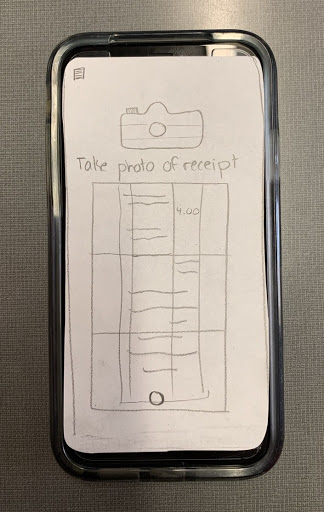 Take photo of receipt
4.00